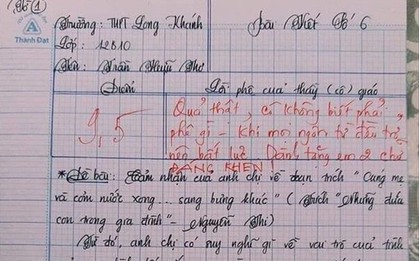 Tờ (1)
Thành Đạt
Trường: THPT Long Khánh Bài Viết Số 6
Lớp: 12B10
Tên: Trần Thuỳ Như
Điểm Lời phê của thầy (cô) giáo
9,5 Quả thật, cô không biết phải
phê gì - Khi mọi ngôn từ đều trở
nên bất lực. Dành tặng em 2 chữ
ĐÁNG KHEN!
* Đề bài: Cảm nhận của anh chị về đoạn trích "Cúng mẹ
và cơm nước xong... sang hừng khác" (trích "Những đứa
con trong gia đình" - Nguyễn Thi)
Từ đó, anh chị có suy nghĩ gì về vai trò của tình